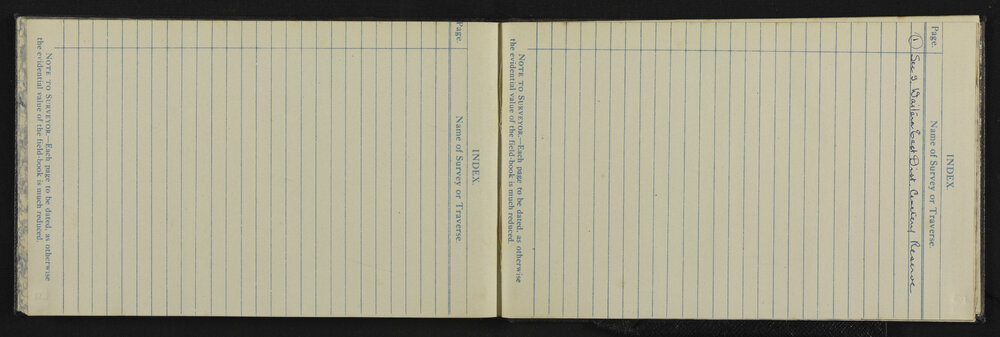 INDEX.
Page. Name of Survey or Traverse.
NOTE TO SURVEYOR.—Each page to be dated, as otherwise
the evidential value of the field-book is much reduced.
INDEX.
Page. Name of Survey or Traverse.
1 Sec 9 Waitara East Dist. Cemetery Reserve
NOTE TO SURVEYOR.—Each page to be dated, as otherwise
the evidential value of the field-book is much reduced.